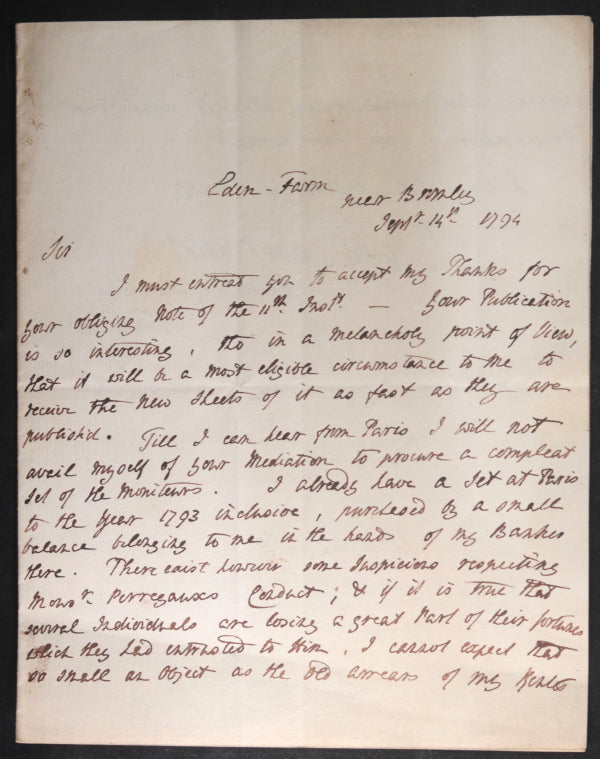 Eden-Farm near Bromley
Septr. 14th. 1794
Sir
I must entreat you to accept my Thanks for
your obliging Note of the 11th Inst. — your Publication
is so interesting, tho in a melancholy point of View,
that it will be a most eligible circumstance to me to
receive the new sheets of it as fast as they are
publish'd. Till I can hear from Paris I will not
avail myself of your Mediation to procure a compleat
set of the Moniteurs. I already have a Set at Paris
to the Year 1793 inclusive, purchased by a small
balance belonging to me in the hands of my Banker
there. There exist however some Suspicions respecting
Monsr. Perregaux's Conduct; & if it is true that
several Individuals are losing a great Part of their fortunes
which they had entrusted to Him, I cannot expect that
so small an Object as the old arrears of my